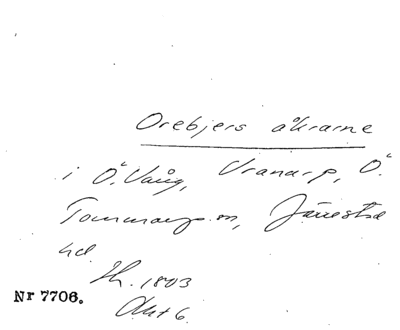 Orebjers åkrarne
i Ö. Vång, Vranarp, Ö.
Tommarps sn, Järrestad
hd.
Sk. 1803
Akt 6.
Nr 7706.